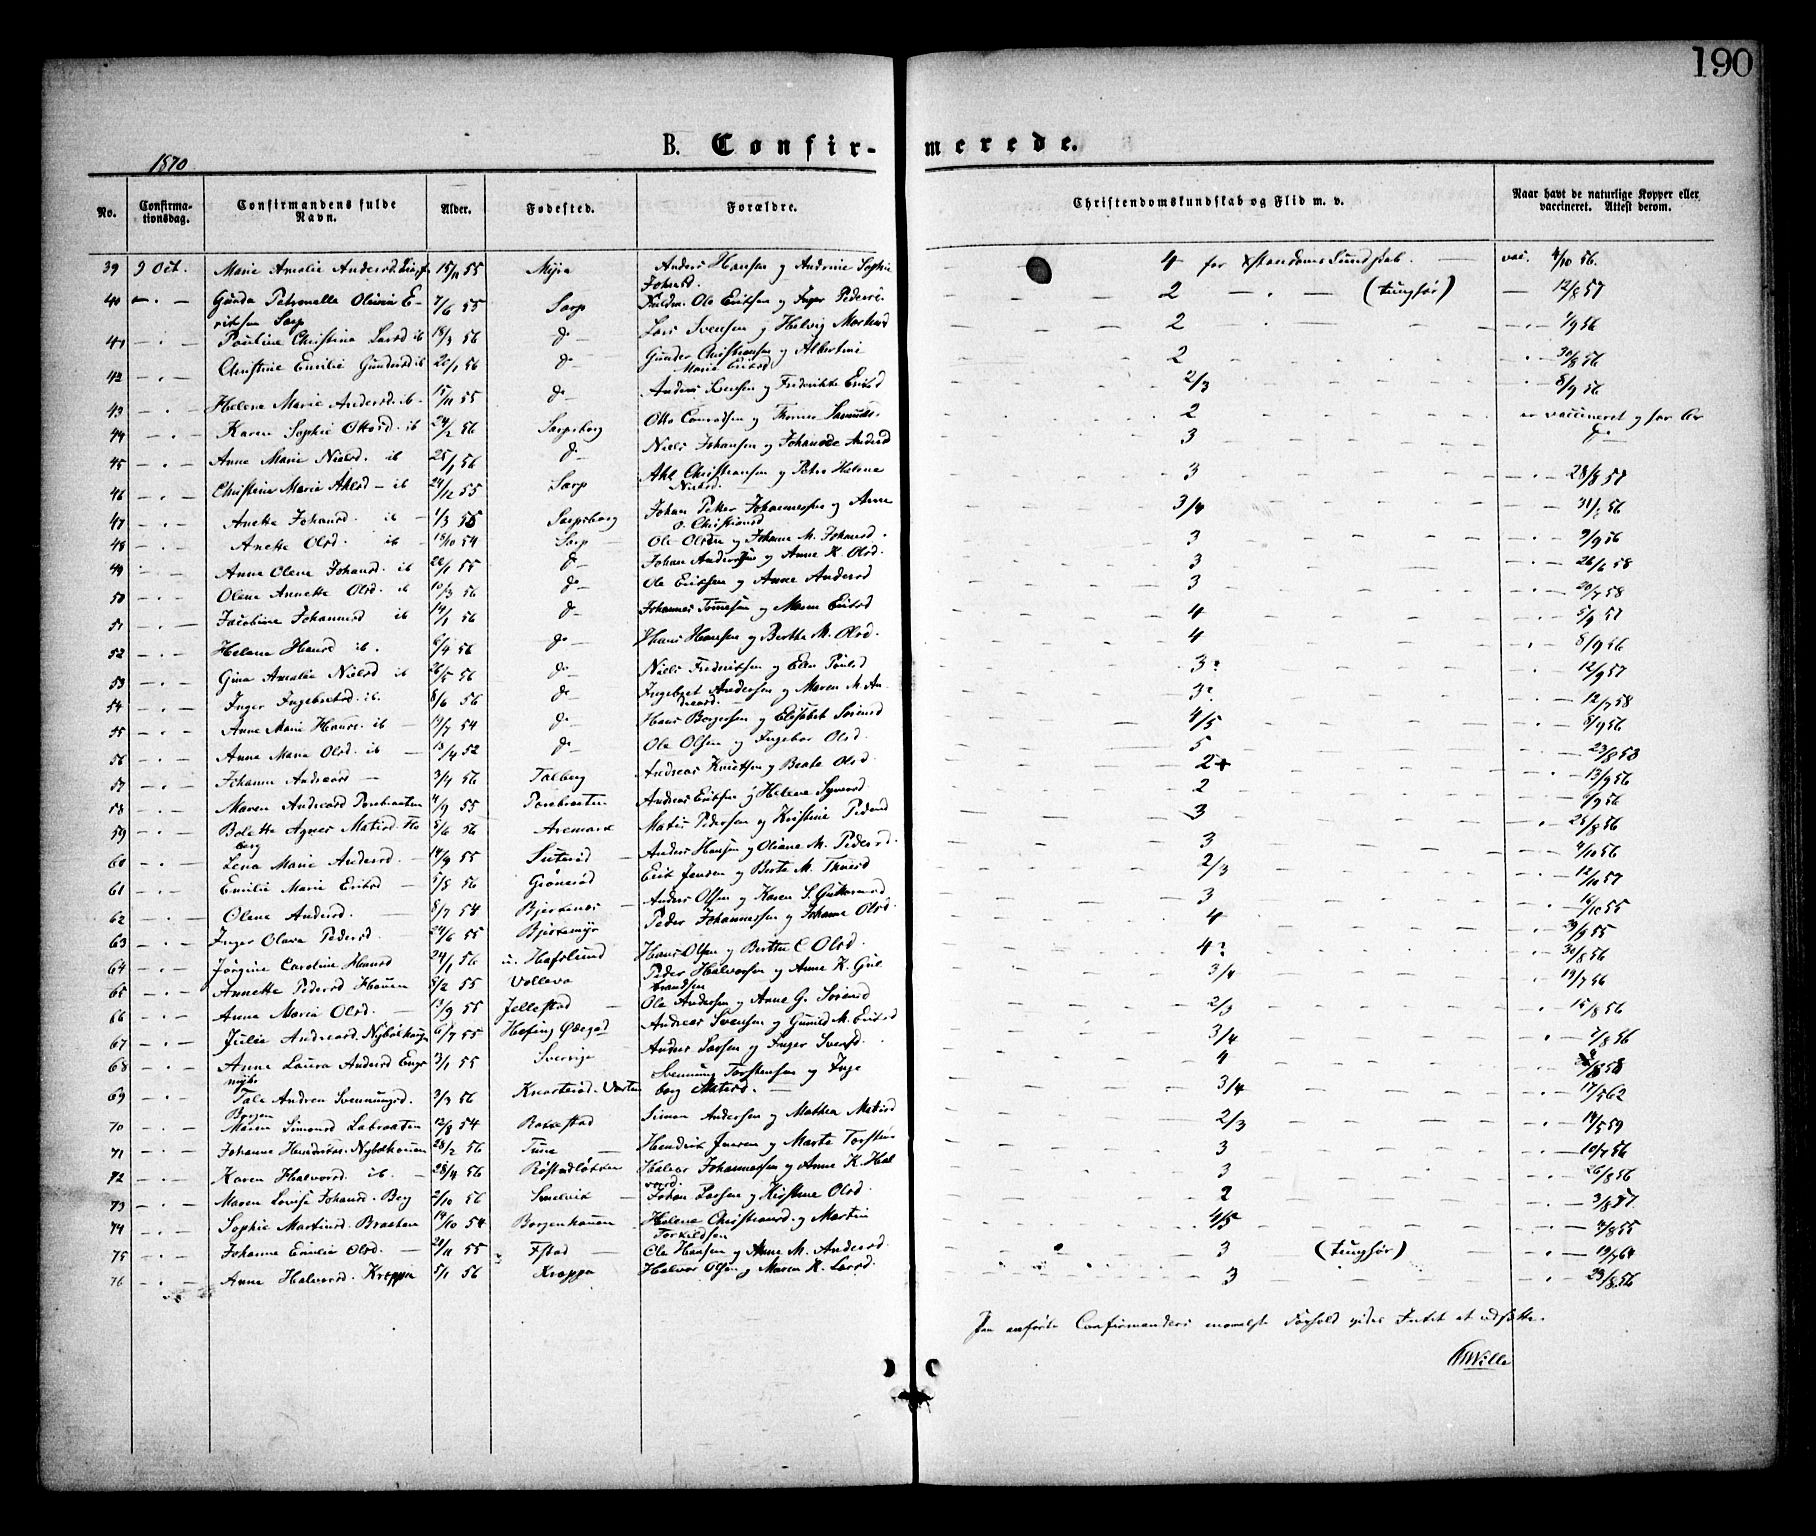 190
B. Confir- merede.
1870
No. Confirma-tionsdag. Confirmandens fulde Navn. Alder. Fødested. Forældre. Christendomskundskab og Flid m. v. Naar havt de naturlige Kopper eller vaccineret. Attest derom.
39 9 Oct. Marie Amalie Andersd. 15/11 55 Anders Hansen og Andrine Sophie Johansd. 4 for vac. 4/10 56.
40 Gunda Petronella Olivia E-riksen Sarp 7/6 55 Sarp Ole Eriksen og Inger Peders 2 (tunghør) 12/8 57
41 Pauline Christina Larsd ib 18/3 56 do Lars Svensen og Helvig Martinsd 2 1/9 56
42 Christine Emilie Gundersd ib 20/1 56 do Gunder Christiansen og Albertine Marie Eriksd 2 30/8 56
43 Helene Marie Andersd. ib 15/11 55 do Anders Svensen og Frederikke Eriksd 2/3 8/9 56
44 Karen Sophie Ottosd. ib 24/2 56 Sarpsborg Otto Conradsen og 2 er vaccineret og har
45 Anne Marie Nielsd. ib 25/1 56 do Niels Johansen og Johanne Andersd 3
46 Christine Marie Akilsd ib 24/12 55 Sarp Christiansen og Petra Helene Nielsd 3 28/8 57
47 Anette Johansd. ib 1/3 55 Sarpsborg Johan Peter Johannessen og Anne O. Christiansd 3/4 31/ 56
48 Anette Olsd. ib 15/10 54 Sarp Ole Olsen og Johanne M. Johansd. 3 9/9 56
49 Anne Olene Johansd. ib 20/1 55 do Johan Andersen og Anne K. Olsd. 3 26/6 58
50 Olene Annette Olsd. ib 10/3 56 do Ole Eriksen og Anne Andersd 3 20/7 58
51 Jacobine Johannesd ib 14/1 56 do Johannes Tomesen og Maren Eriksd 4 5/9 57
52 Helene Hansd ib. 6/4 56 do Hans Hansen og Berthe M. Olsd. 4 8/9 56
53 Gina Amalie Nielsd ib 26/5 56 do Niels Frederiksen og Elen Paulsd 3? 12/9 57
54 Inger Ingebretsd. ib. 8/6 56 do Ingebret Andersen og Maren M. An-dreasd. 3? 12/7 58
55 Anne Marie Hansd. ib 19/7 54 do Hans Borgersen og Elisabet Sørensd 4/5 8/9 56
56 Anne Marie Olsd. ib 13/4 52 do Ole Olsen og Ingebor Olsd. 5 23/8 53
57 Johanne Andreasd 3/4 56 Talberg Andreas Knutsen og Beate Olsd. 2+ 13/9 56
58 Maren Andreasd Torsbraaten 4/9 55 Torsbraaten Andreas Eriksen og Helene Syversd 2 6/9 56
59 Bolette Agnes Matisd. Ho berg 5/6 56 Aremark Matis Pedersen og Kristine Pedersd 3 25/8 56
60 Lena Marie Andersd. 14/9 55 Anders Hansen og Oliane M. Pedersd. 3 4/10 56
61 Emilie Marie Eriksd 5/8 56 Grønerød Erik Jensen og Berte M. 2/3 12/10 57
62 Olene Andersd. 8/7 54 Bjerkenes Anders Olsen og Karen S. 3 16/10 55
63 Inger Olava Pedersd. 24/6 55 Bjerkemyr Peder Johannessen og Johanne Olsd. 4 29/9 55
64 Jørgine Caroline Hansd 24/1 56 u. Hafslund Hans Olsen og Berthe C Olsd. 4? 30/8 56
65 Annette Pedersd Hauen 8/2 55 Peder Halvorsen og Anne K. Gul brandsen 3/4 19/7 56
66 Anne Marie Olsd. 13/9 55 Jellestad Ole Andersen og Anne G. Sørensd 2/3 15/8 56
67 Julie Andreasd. Nybølhaugen 6/7 55 Andreas Svensen og Gunild M. Eriksd 3/4 7/8 56
68 Anne Laura Andersd Enge nybr 3/1 55 Sverige Anders Larsen og Inger Svensd. 4 /8 58
69 Tale Andrea Svenningsd. Borgen 3/3 56 Knarterød. Varteig Svenning Torstensen og Inge borg Matisd. 3/4 17/5 62
70 Maren Simonsd Labraaten 12/8 54 Rakkestad Simon Andersen og Mathea Matisd 2/3 14/5 59
71 Johanne Hendriks. Nybølhauen 28/2 56 Tune Hendrik Jensen og Marte Torstens 3 10/7 56
72 Karen Halvorsd. ib. 28/4 56 Halvor Johannessen og Anne K. Hal vorsd. 3 26/8 56
73 Maren Lovise Johansd. Berg 2/10 56 Smelvik Johan Larsen og Kirstine Olsd. 2 3/8 57
74 Sophie Martinsd. Braathen 19/10 54 Borgenhauen Helene Christiansd. og Martin Torkildsen 4/5 4/8 55
75 Johanne Emilie Olsd. 21/11 55 Istad Ole Hansen og Anne M. Andersd. 3 (tunghør) 19/7 64
76 Anne Halvorsd. Kroppa 5/1 56 Kroppa Halvor Olsen og Maren K. Larsd. 3 23/8 56
Paa anførte Confirmanders moralske Forhold vides Intet at udsætte.
Wille